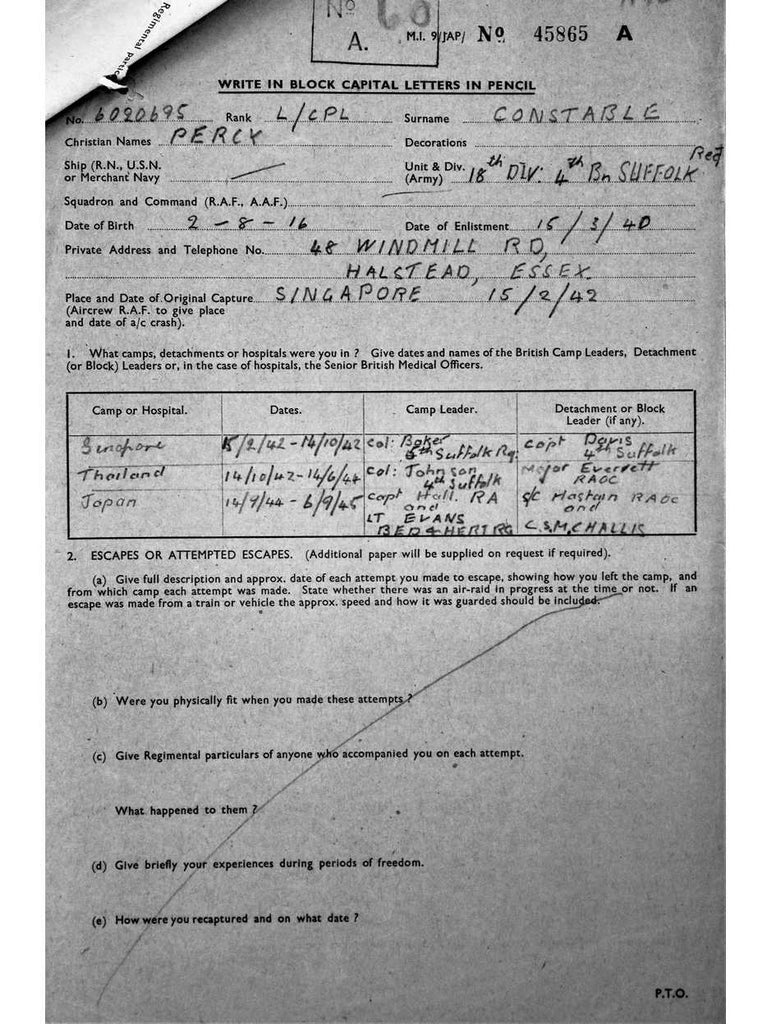 Regimental partic
No 60
A. M.I. 9/JAP/ No 45865 A
WRITE IN BLOCK CAPITAL LETTERS IN PENCIL
No. 6020695 Rank L/CPL Surname CONSTABLE
Christian Names PERCY Decorations
Ship (R.N., U.S.N. or Merchant Navy
Unit & Div. (Army) 18th DIV: 4th Bn SUFFOLK Reg
Squadron and Command (R.A.F., A.A.F.)
Date of Birth 2-8-16 Date of Enlistment 15/3/40
Private Address and Telephone No. 48 WINDMILL RD,
HALSTEAD, ESSEX
Place and Date of Original Capture SINGAPORE 15/2/42
(Aircrew R.A.F. to give place
and date of a/c crash).
1. What camps, detachments or hospitals were you in ? Give dates and names of the British Camp Leaders, Detachment
(or Block) Leaders or, in the case of hospitals, the Senior British Medical Officers.
Camp or Hospital. Dates. Camp Leader. Detachment or Block
Leader (if any).
Singapore 15/2/42-14/10/42 Col: Baker Capt Davis
5th Suffolk Rg: 4th Suffolk
Thailand 14/10/42-14/6/44 Col: Johnson Major Everrett
4th Suffolk RAOC
Japan 14/9/44-6/9/45 Capt Hall. RA Hastain RAOC
and and
LT EVANS
BED & HERT RG C.S.M. CHALLIS
2. ESCAPES OR ATTEMPTED ESCAPES. (Additional paper will be supplied on request if required).
(a) Give full description and approx. date of each attempt you made to escape, showing how you left the camp, and
from which camp each attempt was made. State whether there was an air-raid in progress at the time or not. If an
escape was made from a train or vehicle the approx. speed and how it was guarded should be included.
(b) Were you physically fit when you made these attempts ?
(c) Give Regimental particulars of anyone who accompanied you on each attempt.
What happened to them ?
(d) Give briefly your experiences during periods of freedom.
(e) How were you recaptured and on what date ?
P.T.O.